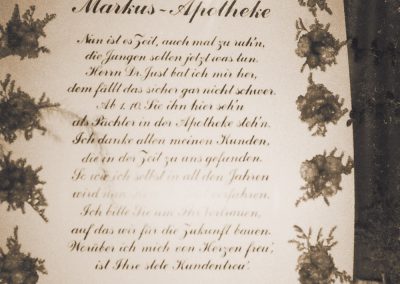 Markus-Apotheke
Nun ist es Zeit, auch mal zu ruh'n,
die Jungen sollen jetzt was tun.
Herrn Dr. Just bat ich mir her,
dem fällt das sicher gar nicht schwer.
Ab 1. 10. Sie ihn hier seh'n
als Pächter in der Apotheke steh'n.
Ich danke allen meinen Kunden,
die in der Zeit zu uns gefunden.
So wie ich selbst in all den Jahren
wird verfahren.
Ich bitte Sie um Ihr Vertrauen,
auf das wir für die Zukunft bauen.
Worüber ich mich von Herzen freu',
ist Ihre stete Kundentreu'.